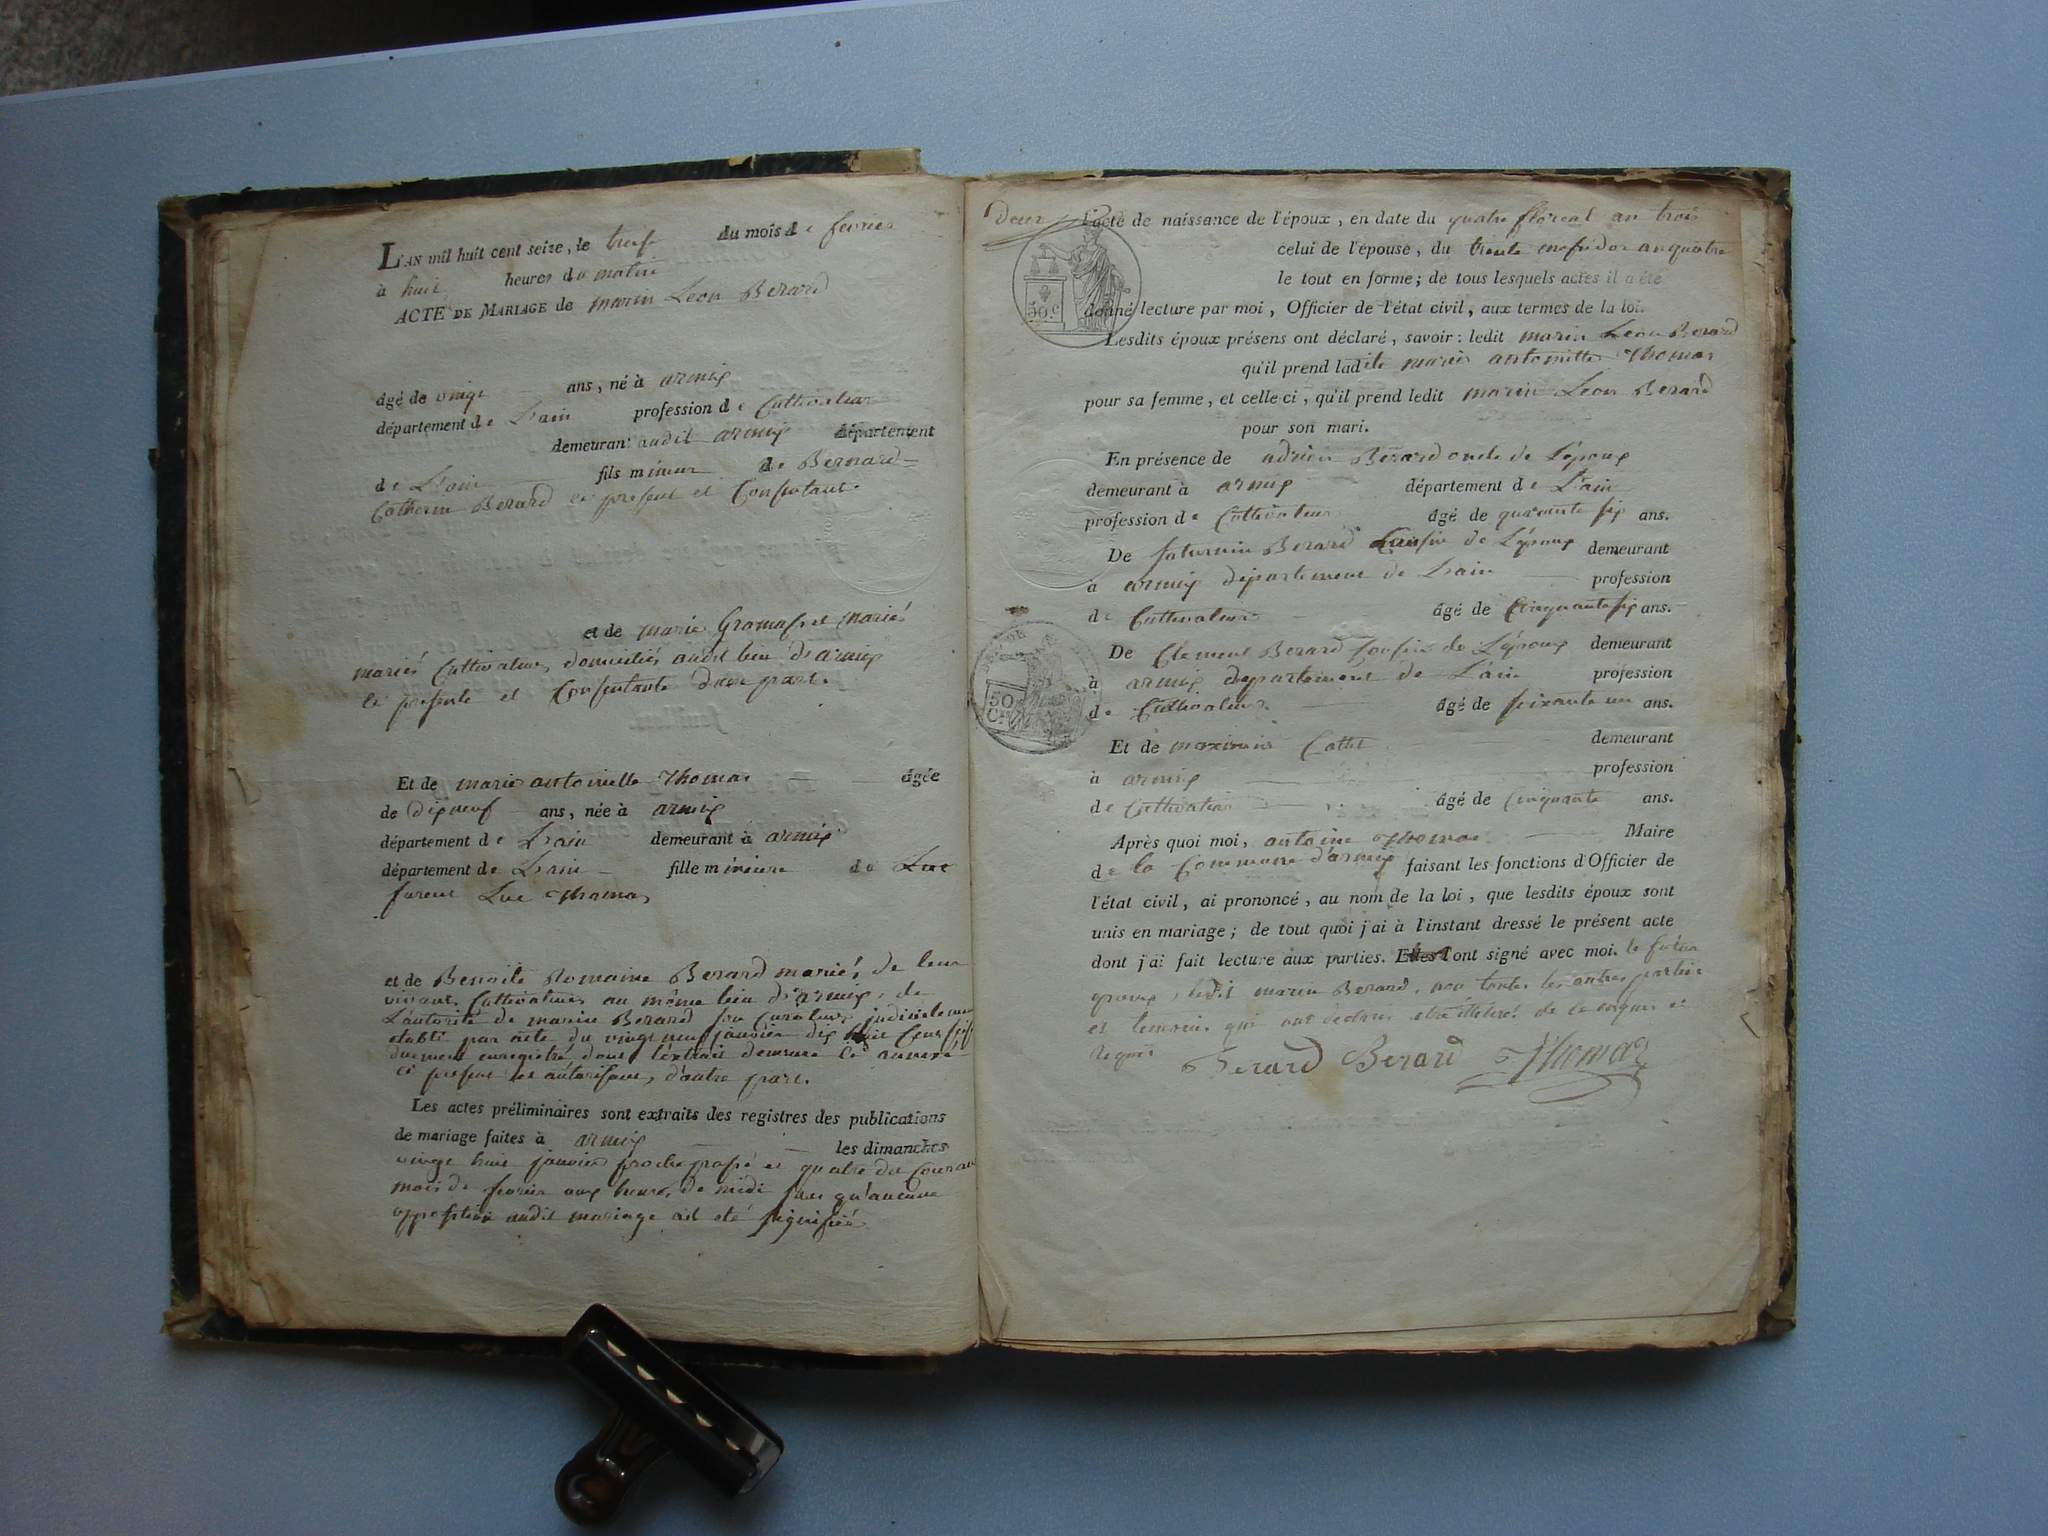 L'AN mil huit cent seize, le treize du mois de fevrier
à huit heures du matin
ACTE DE MARIAGE de marin Leon Berard
âgé de vingt ans, né à armix
département de L'ain profession de Cultivateur
demeurant audit armix département
de L'ain fils mineur de Bernard=
Catherin Berard ici present et Consentant.
et de marie Gramasset mariés
mariés Cultivateurs domiciliés audit lieu d'armix
ici presente et Consentante d'une part.
Et de marie antoinette Thomas âgée
de dixneuf ans, née à armix
département de L'ain demeurant à armix
département de L'ain fille mineure de Luc
Luc Thomas
et de Benoite Romaine Berard mariés de leur
vivant Cultivateurs au même lieu d'armix, de
L'autorité de marin Berard son Curateur
etabli par acte du vingt neuf janvier dix huit Cent
duement enregistré dont l'extrait demeure ici annexé
ci present les autorisant, d'autre part.
Les actes préliminaires sont extraits des registres des publications
de mariage faites à armix les dimanches
vingt huit janvier proche passé et quatre du Courant
mois de fevrier aux heures de midi sans qu'aucune
opposition audit mariage ait été signifiée
Deux
l'acte de naissance de l'époux, en date du quatre floreal an trois
celui de l'épouse, du trente messidor an quatre
le tout en forme; de tous lesquels actes il a été
donné lecture par moi, Officier de l'état civil, aux termes de la loi.
50.c
Lesdits époux présens ont déclaré, savoir: ledit marin Leon Berard
qu'il prend ladite marie antoinette Thomas
pour sa femme, et celle ci, qu'il prend ledit marin Leon Berard
pour son mari.
En présence de adrien Berard oncle de L'époux
demeurant à armix département de L'ain
profession de Cultivateur âgé de quarante six ans.
De saturnin Berard Cousin de L'époux demeurant
à armix département de L'ain profession
de Cultivateur âgé de Cinquante six ans.
De Clement Berard Cousin de L'époux demeurant
à armix departement de L'ain profession
50
Cs
de Cultivateur âgé de soixante un ans.
Et de maximin Cottet demeurant
à armix profession
de Cultivateur âgé de Cinquante ans.
Après quoi moi, antoine Thomas Maire
de la Commune d'armix faisant les fonctions d'Officier de
l'état civil, ai prononcé, au nom de la loi, que lesdits époux sont
unis en mariage; de tout quoi j'ai à l'instant dressé le présent acte
dont j'ai fait lecture aux parties. Elles l'ont signé avec moi. le futur
epoux, ledit marin Berard, non toutes les autres parties
et temoins qui ont declaré etre illitérés de ce enquis et
requis Berard Berard Thomas